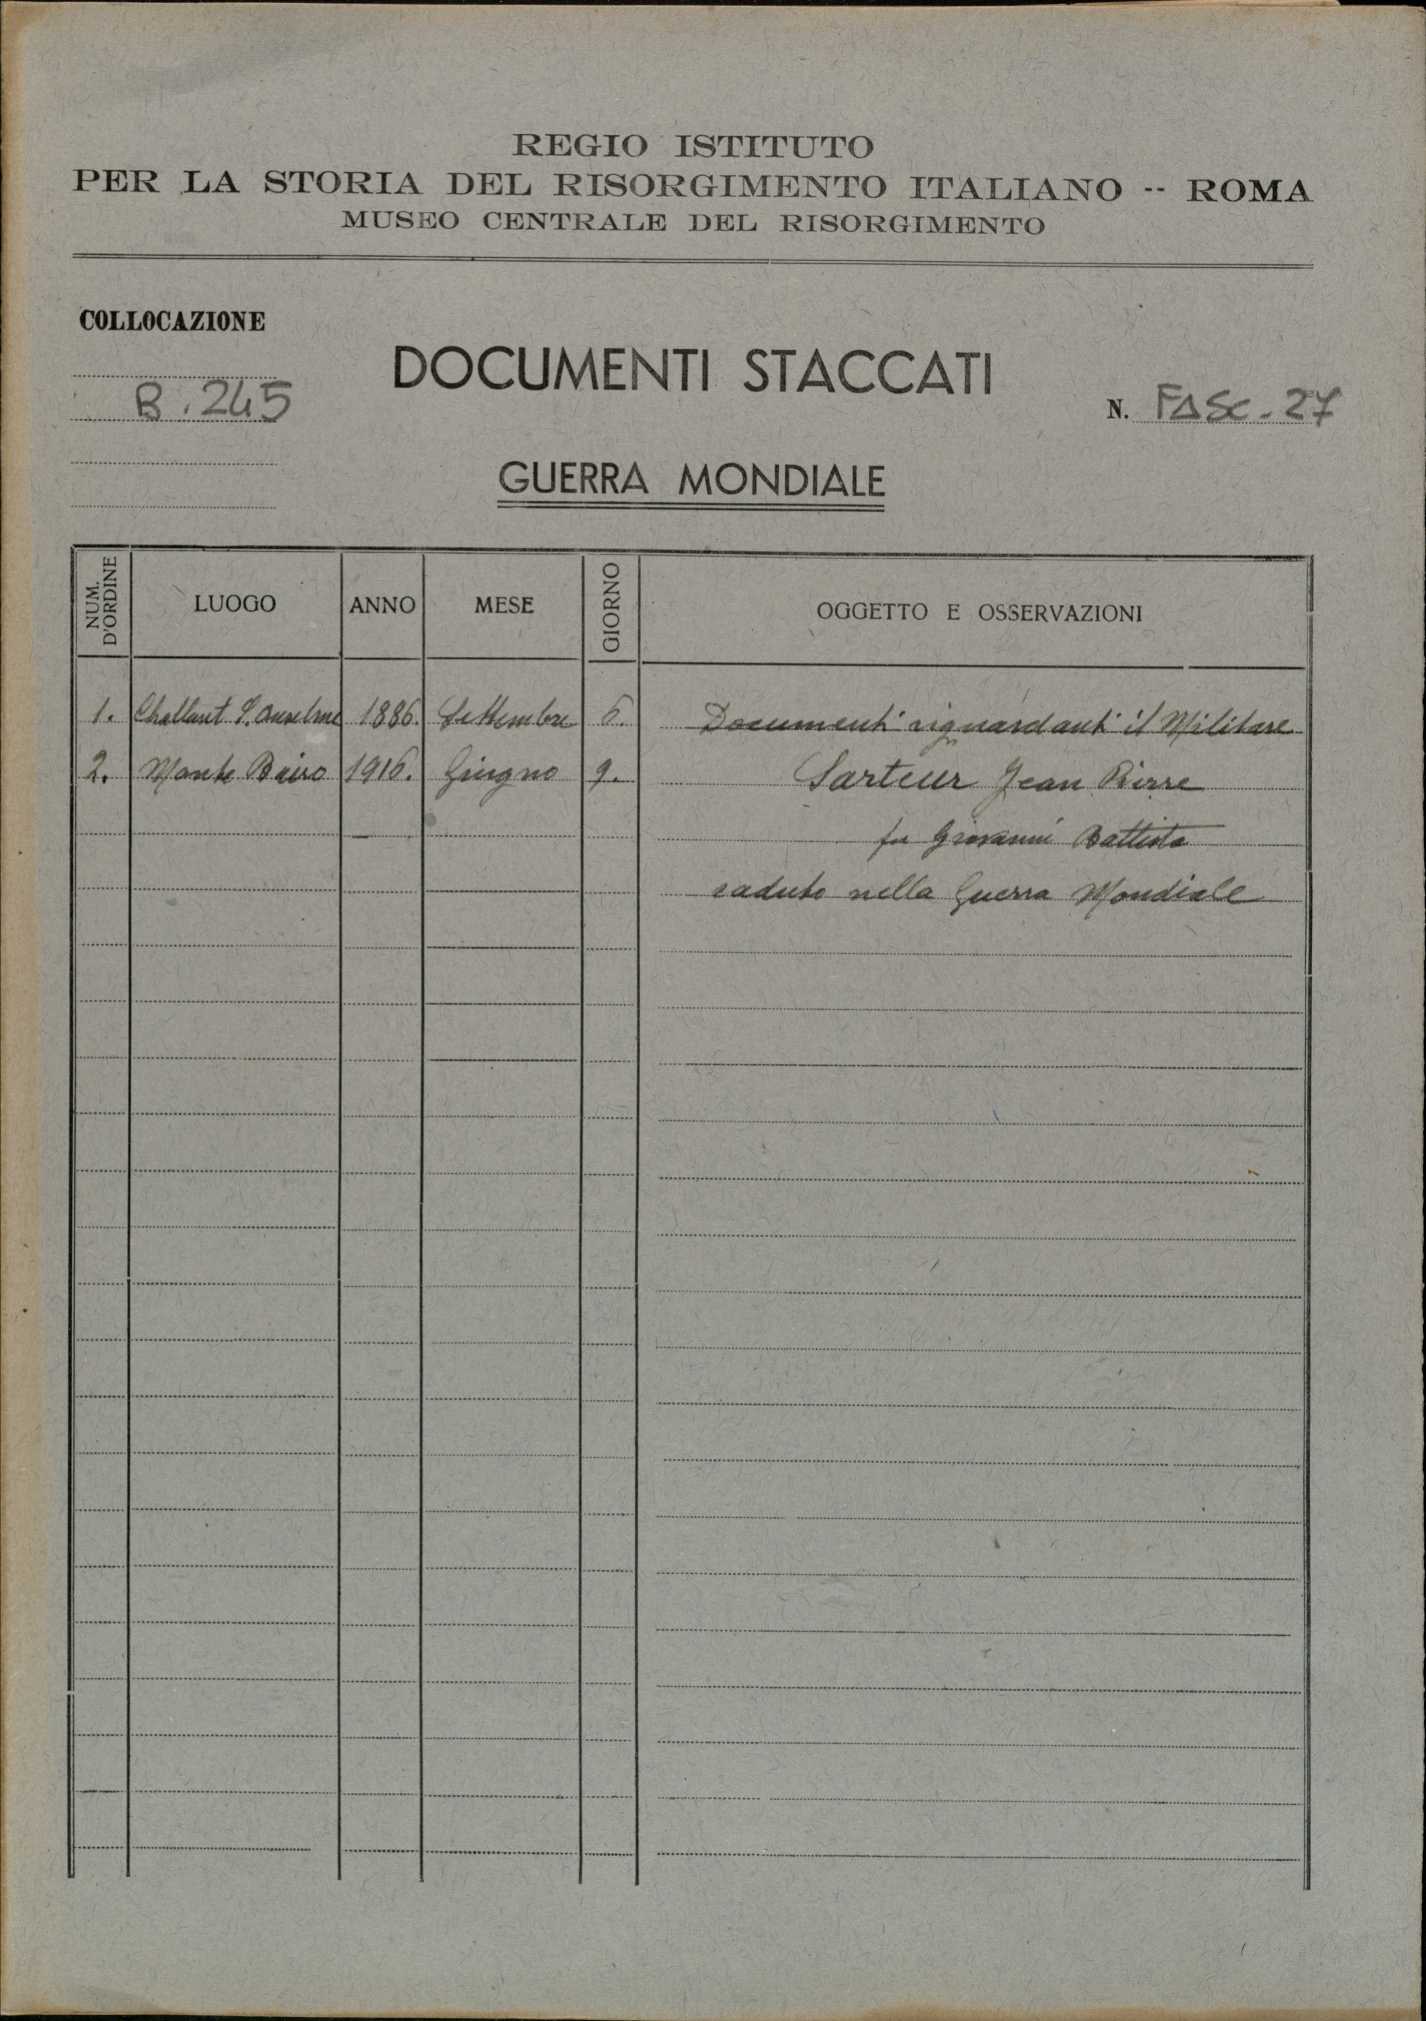 REGIO ISTITUTO
PER LA STORIA DEL RISORGIMENTO ITALIANO -- ROMA
MUSEO CENTRALE DEL RISORGIMENTO
COLLOCAZIONE
DOCUMENTI STACCATI
B. 245
N. FASC. 27
GUERRA MONDIALE
NUM. D'ORDINE LUOGO ANNO MESE GIORNO OGGETTO E OSSERVAZIONI
1. Challant S. Anselme 1886. Settembre 6. Documenti riguardanti il Militare
2. Monte Bairo 1916. Giugno 9. Sarteur Jean Pierre
fu Giovanni Battista
caduto nella Guerra Mondiale